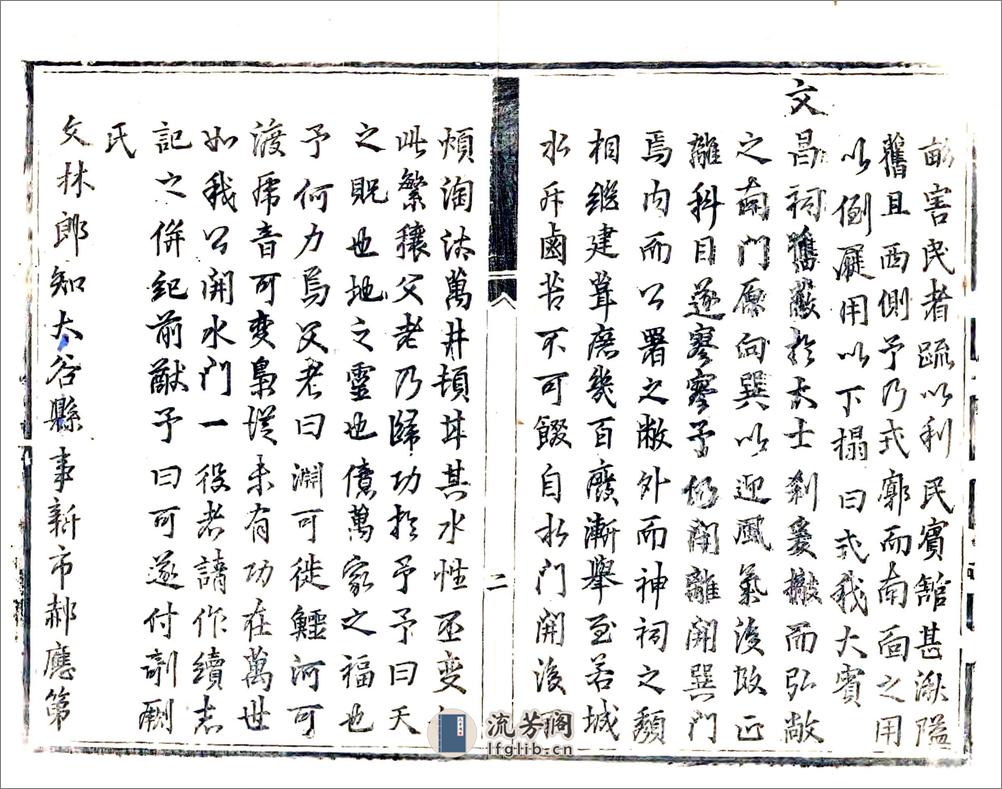 害民者疏以利民賓館甚湫隘
舊且西側予乃式廓而南面之用
以倒屣用以下榻曰式我大賓
文昌祠舊蔽於大士剎爰撤而弘敞
之南門原向巽以迎風氣後改正
離科目遂寥寥予仍開離開巽門
焉內而公署之敝外而神祠之頹
相繼建葺庶幾百廢漸舉至若城
水斥鹵苦不可餟自水門開後
二
煩淘汰萬井頓甘其水性丕變
此繁穰父老乃歸功於予予曰天
之貺也地之靈也億萬家之福也
予何力焉父老曰淵可徙鱷河可
渡虎音可變梟從未有功在萬世
如我公開水門一役者請作續志
記之併紀前猷予曰可遂付剞劂
氏
文林郎知太谷縣事新市郝應第
流芳阁
lfglib.cn